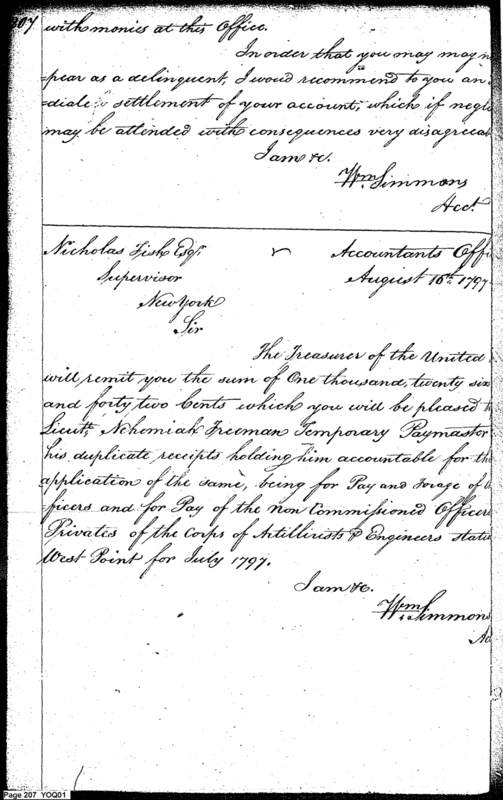 207
with monies at this Office.
In order that you may may n
=pear as a delinquent, I would recommend to you an
=diate settlement of your account, which if negle
may be attended with consequences very disagreeab
I am &c.
Wm Simmons
Acct.
Nicholas Fish Esqr. Accountants Offi
Supervisor August 16th. 1797
New York
Sir
The Treasurer of the United
will remit you the sum of One thousand, twenty six
and forty two Cents which you will be pleased t
Lieutt. Nehemiah Freeman Temporary Paymaster
his duplicate receipts holding him accountable for the
application of the same, being for Pay and forage of O
fficers and for Pay of the Non Commissioned Officers
Privates of the Corps of Artillirists & Engineers statio
West Point for July 1797.
I am &c.
Wm Simmons
Ac
Page 207 YOQ01